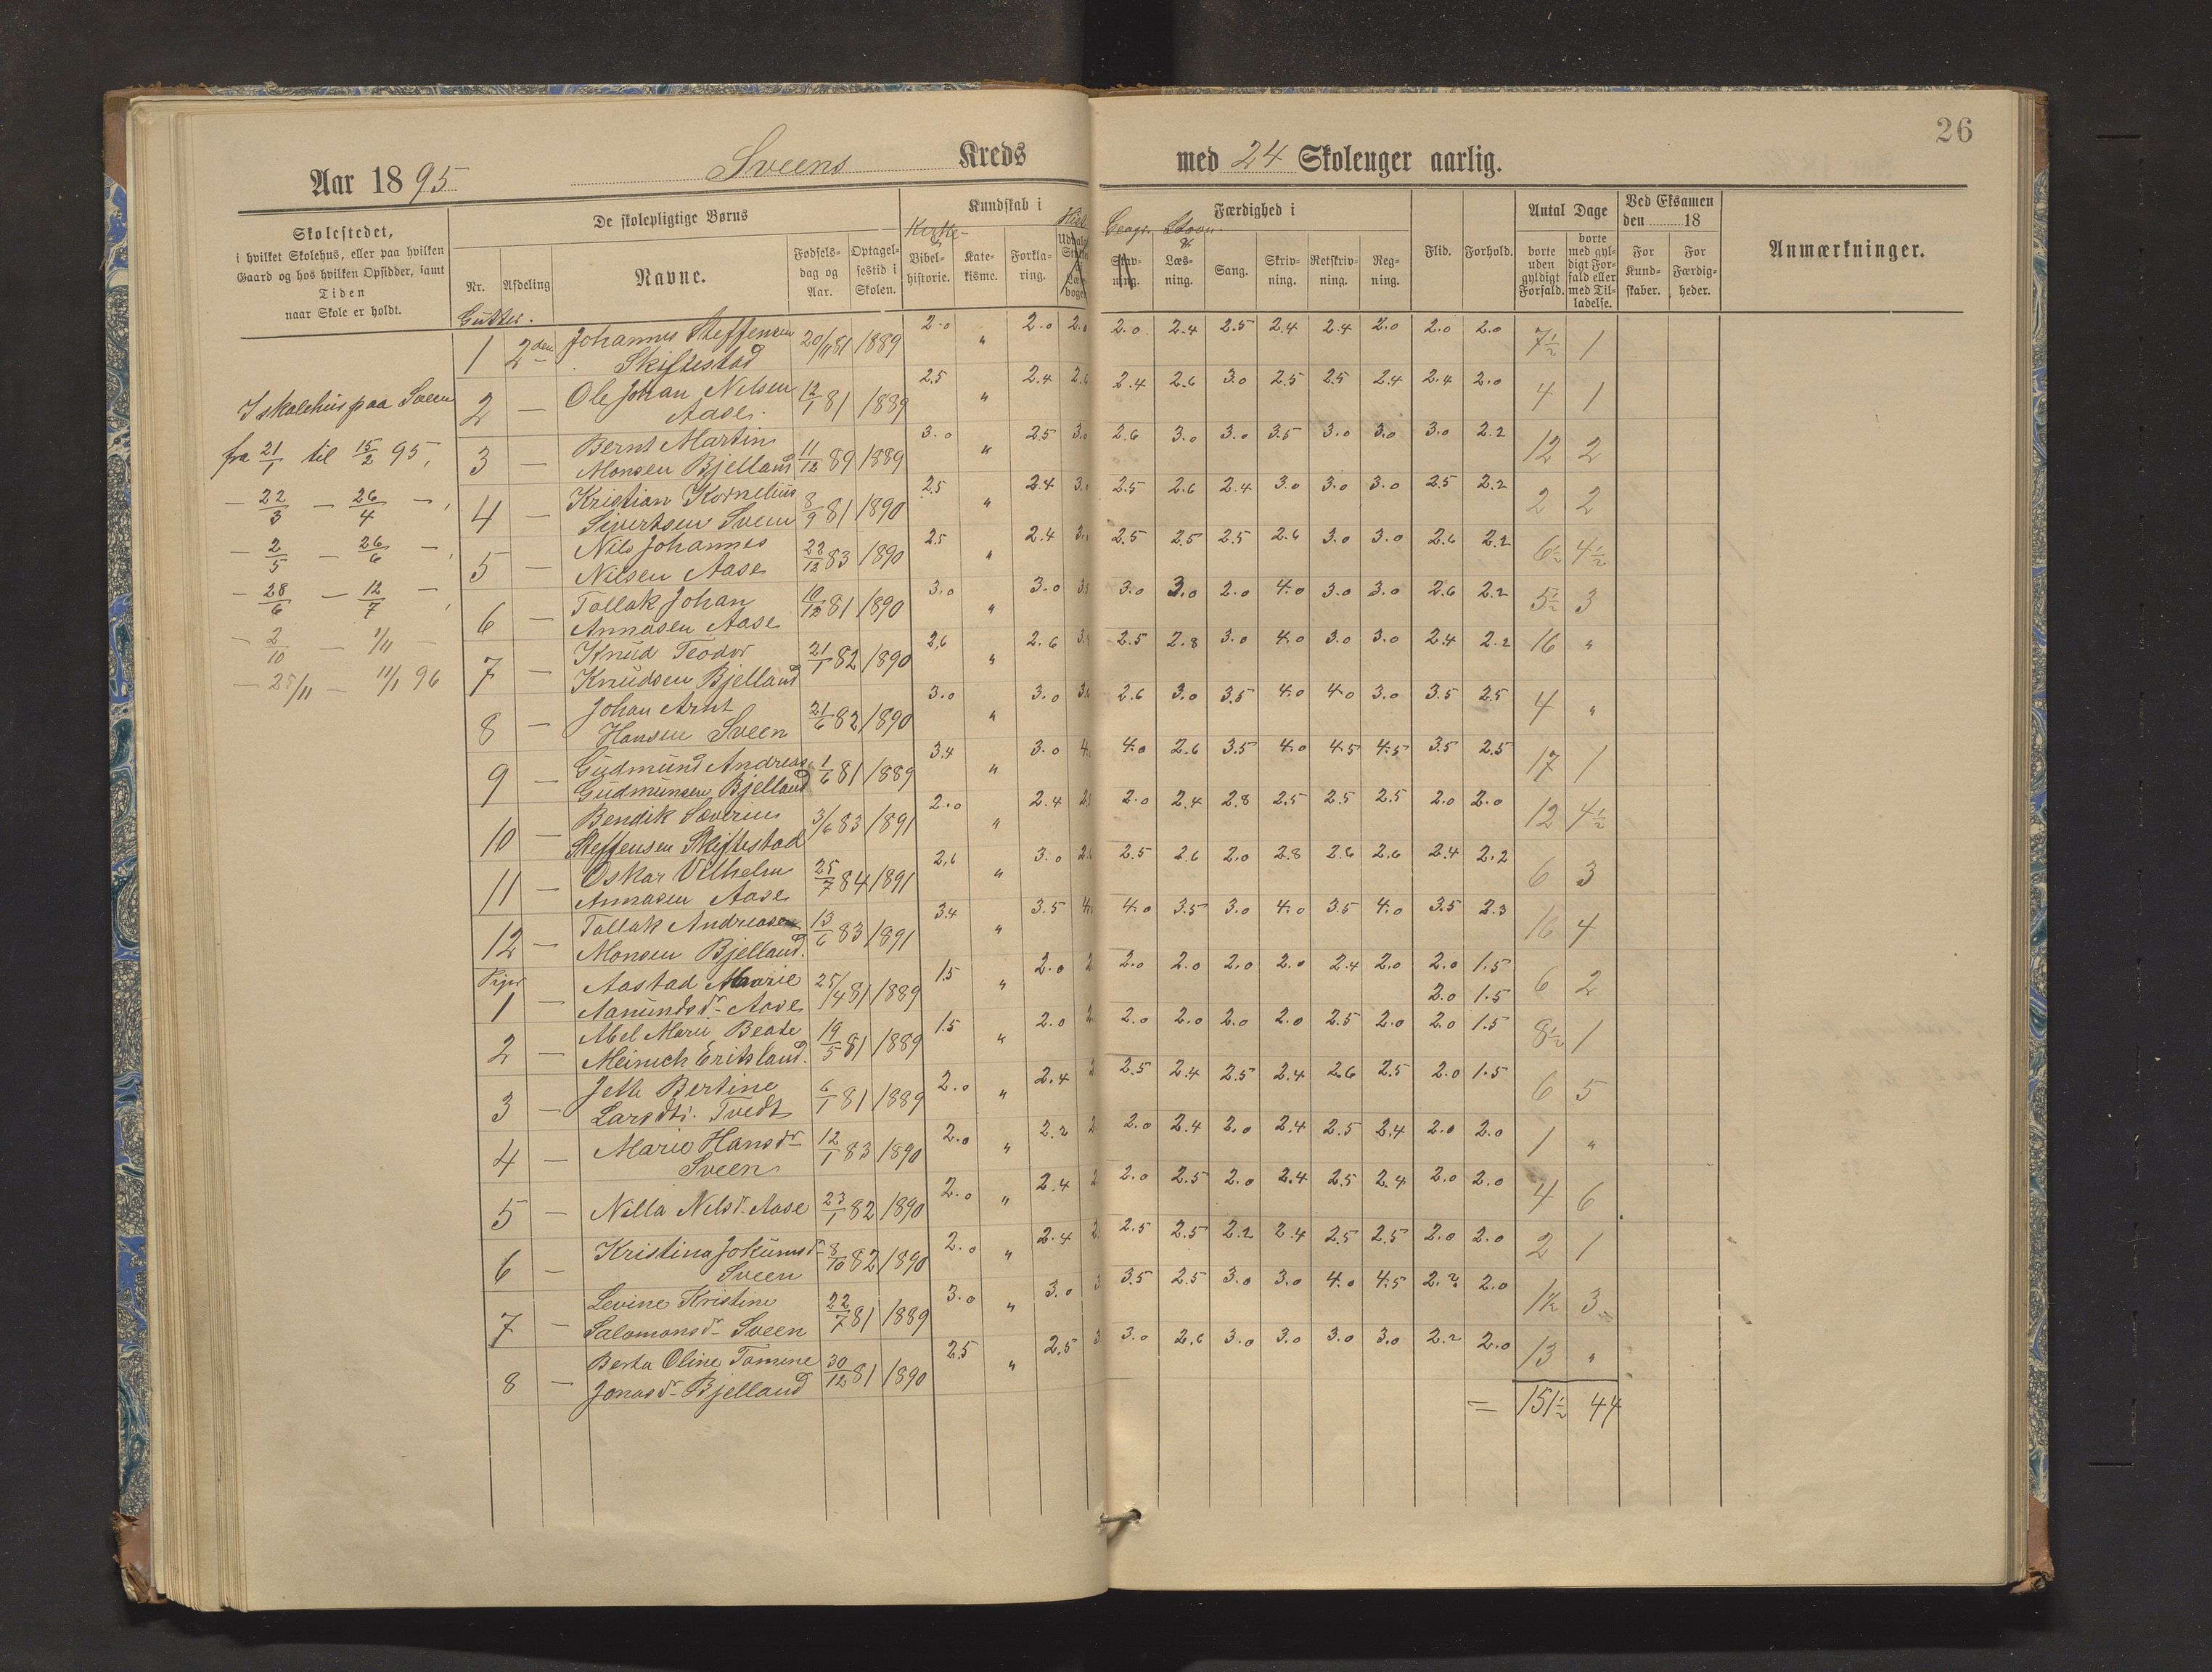 26
Aar 1895
Sveens Kreds
med 24 Skolenger aarlig.
Skolestedet,
i hvilket Skolehus, eller paa hvilken
Gaard og hos hvilken Opsidder, samt
Tiden
naar Skole er holdt.
De skolepligtige Børns
Nr. Afdeling Navne. Fødselsdag og Aar. Optagelsestid i Skolen.
Kundskab i
Kirke- & Bibelhistorie. Katekisme. Forklaring. Hist
Færdighed i
Geogr. Stavning. Læsning. Sang. Skrivning. Retskrivning. Regning.
Flid. Forhold.
Antal Dage
borte uden gyldigt Forfald. borte med gyldigt Forfald eller med Tilladelse.
Ved Eksamen den 18
For Kundskaber. For Færdigheder.
Anmærkninger.
I skolehus paa Sveen
fra 21/1 til 15/2 95,
— 22/3 — 26/4 —,
— 2/5 — 26/6 —,
— 28/6 — 12/7 —,
— 2/10 — 1/11 —
— 25/11 — 11/1 96
Gutter.
1 2den Johannes Steffensen Skiftestad 20/11 81 1889 2.0 " 2.0 2.0 2.0 2.4 2.5 2.4 2.4 2.0 2.0 2.0 7½ 1
2 — Ole Johan Nilsen Aase 12/1 81 1889 2.5 " 2.4 2.6 2.4 2.6 3.0 2.5 2.5 2.4 2.4 2.0 4 1
3 — Bernt Martin Monsen Bjelland 11/12 89 1889 3.0 " 2.5 3.0 2.6 3.0 3.0 3.5 3.0 3.0 3.0 2.2 12 2
4 — Kristian Kornelius Sivertsen Sveen 8/9 81 1890 2.5 " 2.4 3. 2.5 2.6 2.4 3.0 3.0 3.0 2.5 2.2 2 2
5 — Nils Johannes Nilsen Aase 22/12 83 1890 2.5 " 2.4 3. 2.5 2.5 2.5 2.6 3.0 3.0 2.6 2.2 6½ 4½
6 — Tollak Johan Annasen Aase 10/12 81 1890 3.0 " 3.0 3.5 3.0 3.0 2.0 4.0 3.0 3.0 2.6 2.2 5½ 3
7 — Knud Teodor Knudsen Bjelland 21/1 82 1890 2.6 " 2.6 3. 2.5 2.8 3.0 4.0 3.0 3.0 2.4 2.2 16 "
8 — Johan Arnt Hansen Sveen 21/6 82 1890 3.0 " 3.0 3. 2.6 3.0 3.5 4.0 4.0 3.0 3.5 2.5 4 "
9 — Gudmund Andreas Gudmunsen Bjelland 1/6 81 1889 3.4 " 3.0 4. 4.0 2.6 3.5 4.0 4.5 4.5 3.5 2.5 17 1
10 — Bendik Severin Steffensen Skiftestad 3/6 83 1891 2.0 " 2.4 2.5 2.0 2.4 2.8 2.5 2.5 2.5 2.0 2.0 12 4½
11 — Oskar Vilhelm Annasen Aase 25/7 84 1891 2.6 " 3.0 2.6 2.5 2.6 2.0 2.8 2.6 2.6 2.4 2.2 6 3
12 — Tollak Andreas Monsen Bjelland. 13/6 83 1891 3.4 " 3.5 4. 4.0 3.5 3.0 4.0 3.5 4.0 3.5 2.3 16 4
Piger
1 — Aastad Marie Aamundsdr. Aase 25/4 81 1889 1.5 " 2.0 2. 2.0 2.0 2.0 2.0 2.4 2.0 2.0 1.5 6 2
2.0 1.5
2 — Abel Marie Beate Meinich Eritsland. 19/5 81 1889 1.5 " 2.0 2. 2.0 2.0 2.0 2.0 2.5 2.0 2.0 1.5 8½ 1
3 — Jette Bertine Larsdtr. Tvedt 6/1 81 1889 2.0 " 2.4 2 2.5 2.4 2.5 2.4 2.6 2.5 2.0 1.5 6 5
4 — Marie Hansdr Sveen 12/1 83 1890 2.0 " 2.2 2 2.0 2.4 2.0 2.4 2.5 2.4 2.0 2.0 1 "
5 — Nilla Nilsdr. Aase 23/1 82 1890 2.0 " 2.4 2 2.0 2.5 2.0 2.4 2.5 2.4 2.0 2.0 4 6
6 — Kristina Jokumsdr Sveen 8/10 82 1890 2.0 " 2.4 2. 2.5 2.5 2.2 2.4 2.5 2.5 2.0 2.0 2 1
7 — Levine Kristine Salomonsdr Sveen 22/7 81 1889 3.0 " 3.0 3 3.5 2.5 3.0 3.0 4.0 4.5 2.2 2.0 1½ 3
8 — Berta Oline Tomine Jonasdr Bjelland 30/12 81 1890 2.5 " 2.5 3 3.0 2.6 3.0 3.0 3.0 3.0 2.2 2.0 13 "
= 151½ 44